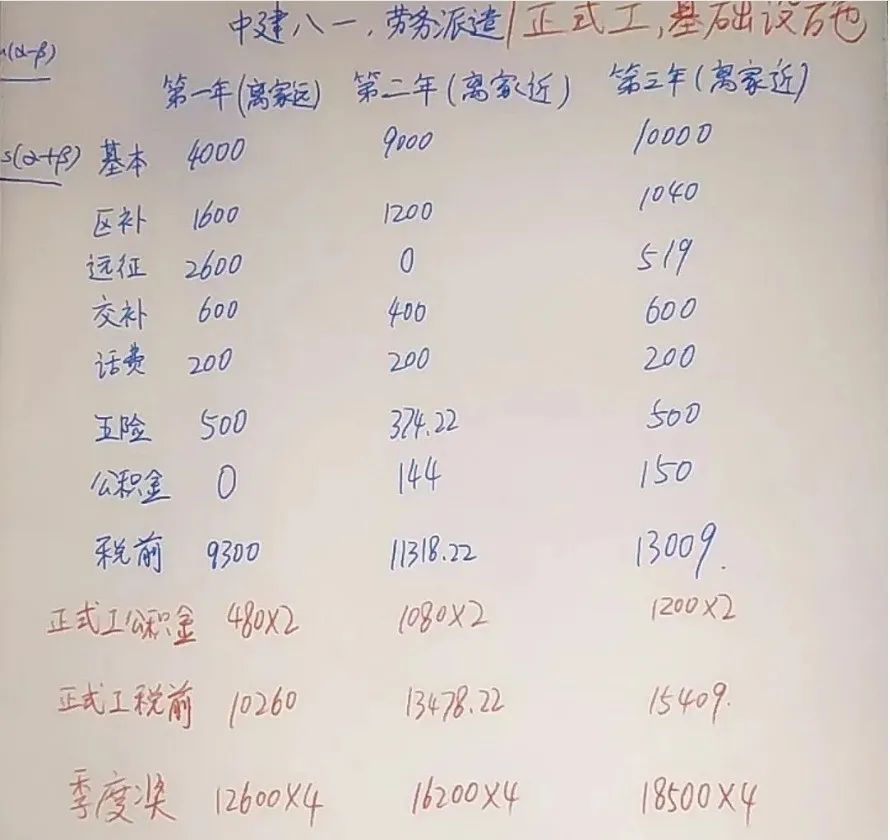 中建八一,劳务派遣/正式工,基础设施
α-β)
第一年(离家远) 第二年(离家近) 第三年(离家近)
s(α+β) 基本 4000 9000 10000
区补 1600 1200 1040
远征 2600 0 519
交补 600 400 600
话费 200 200 200
五险 500 374.22 500
公积金 0 144 150
税前 9300 11318.22 13009.
正式工公积金 480×2 1080×2 1200×2
正式工税前 10260 13478.22 15409.
季度奖 12600×4 16200×4 18500×4